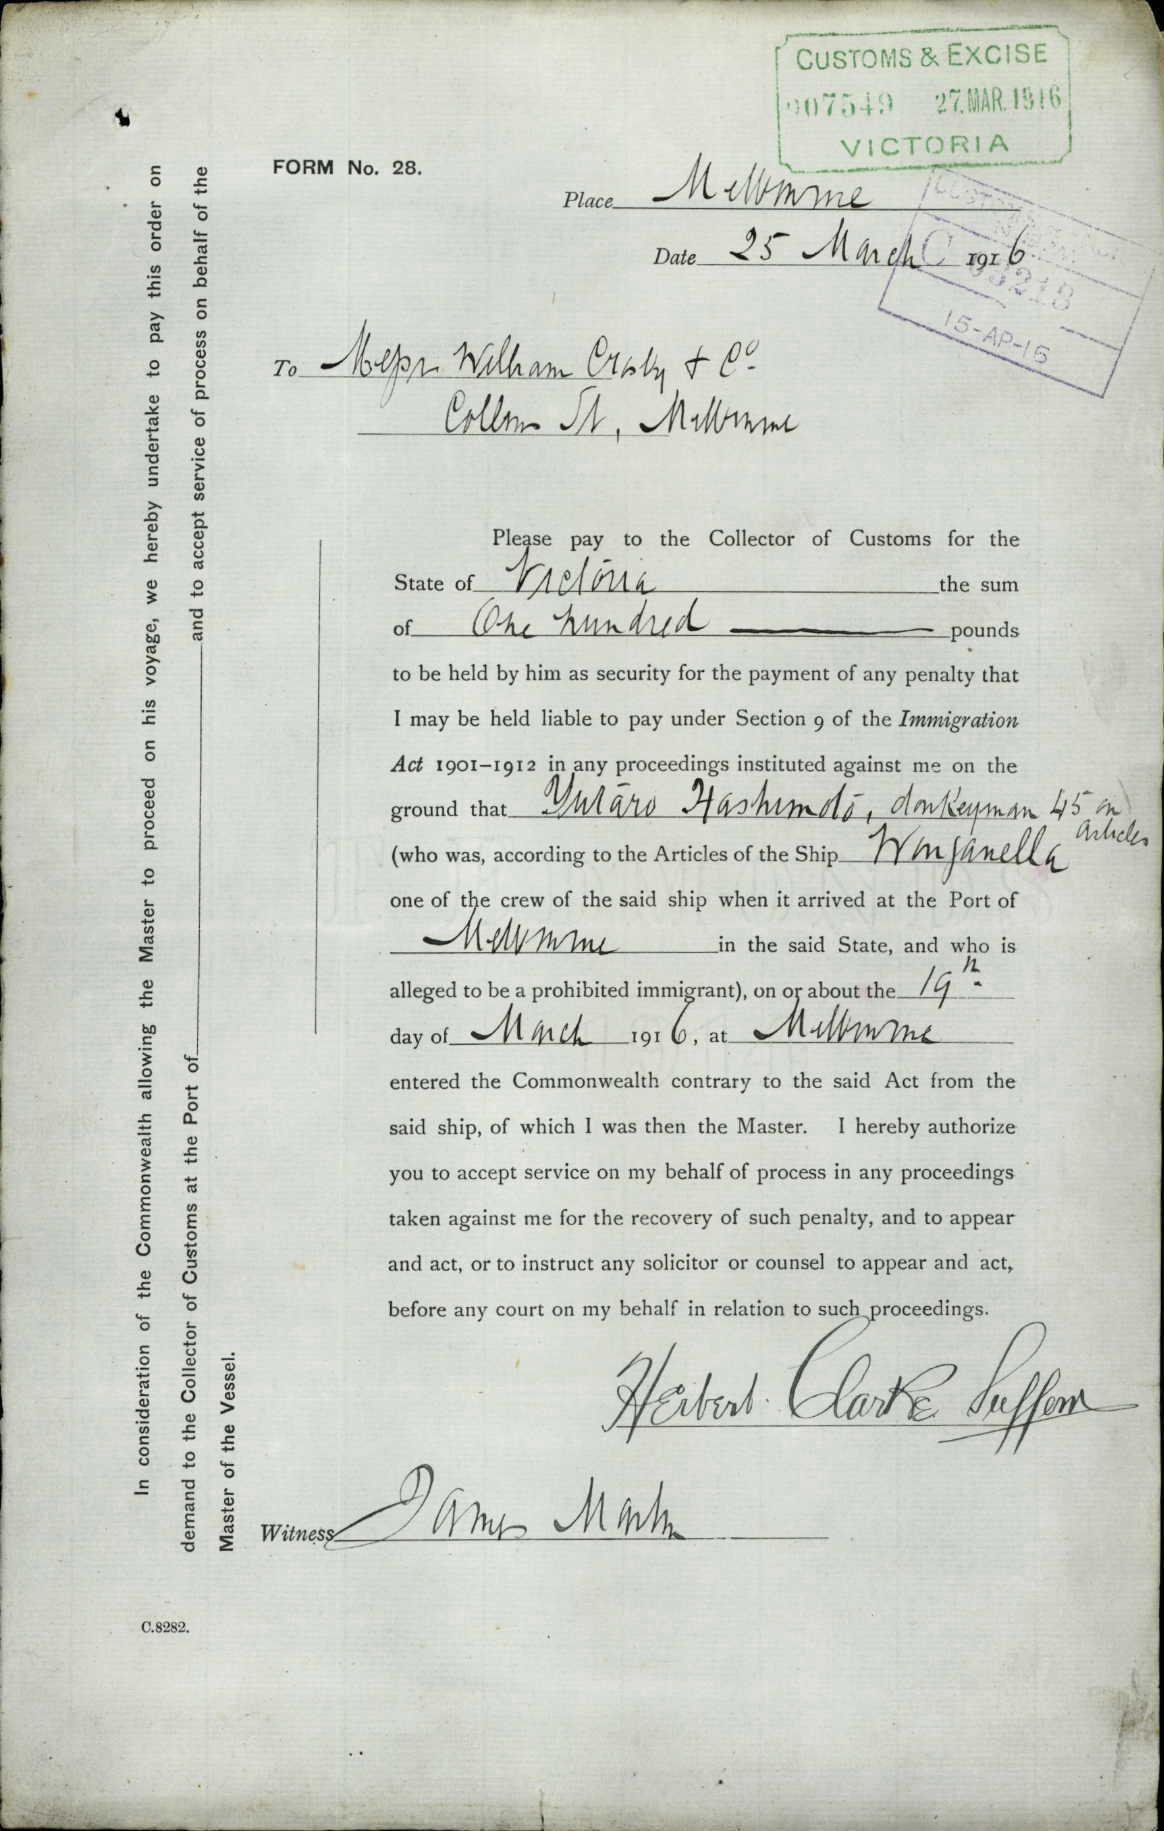 CUSTOMS & EXCISE
007549 27.MAR.1916
VICTORIA
FORM No. 28.
Place Melbourne
Date 25 March 1916
C 03218
15-AP-16
To Messrs William Crosby & Co.
Collins St, Melbourne
Please pay to the Collector of Customs for the
State of Victoria the sum
of One hundred pounds
to be held by him as security for the payment of any penalty that
I may be held liable to pay under Section 9 of the Immigration
Act 1901–1912 in any proceedings instituted against me on the
ground that Yutaro Hashimoto, donkeyman 45 on
articles
(who was, according to the Articles of the Ship Wonganella
one of the crew of the said ship when it arrived at the Port of
Melbourne in the said State, and who is
alleged to be a prohibited immigrant), on or about the 19th
day of March 1916, at Melbourne
entered the Commonwealth contrary to the said Act from the
said ship, of which I was then the Master. I hereby authorize
you to accept service on my behalf of process in any proceedings
taken against me for the recovery of such penalty, and to appear
and act, or to instruct any solicitor or counsel to appear and act,
before any court on my behalf in relation to such proceedings.
Herbert Clarke
Witness James Martin
In consideration of the Commonwealth allowing the Master to proceed on his voyage, we hereby undertake to pay this order on
demand to the Collector of Customs at the Port of and to accept service of process on behalf of the
Master of the Vessel.
C.8282.